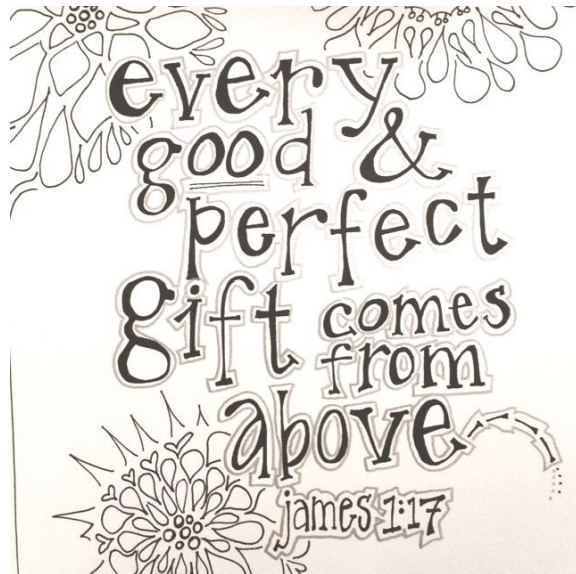 every
good &
perfect
gift comes
from
above
james 1:17